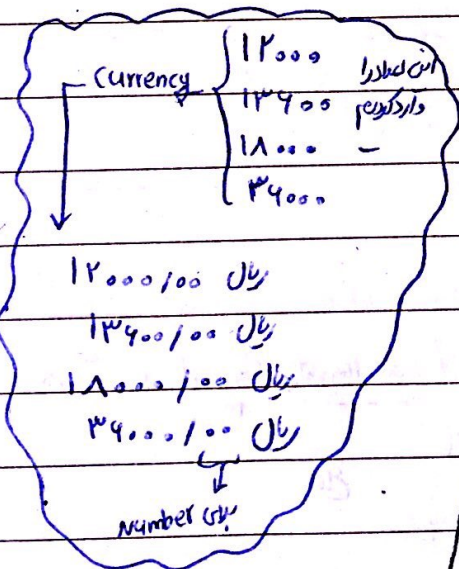 Currency
۱۲۰۰۰
۱۳۶۰۰
۱۸۰۰۰
۳۶۰۰۰
این اعداد را
وارد کردیم
ریال ۱۲۰۰۰/۰۰
ریال ۱۳۶۰۰/۰۰
ریال ۱۸۰۰۰/۰۰
ریال ۳۶۰۰۰/۰۰
برای Number